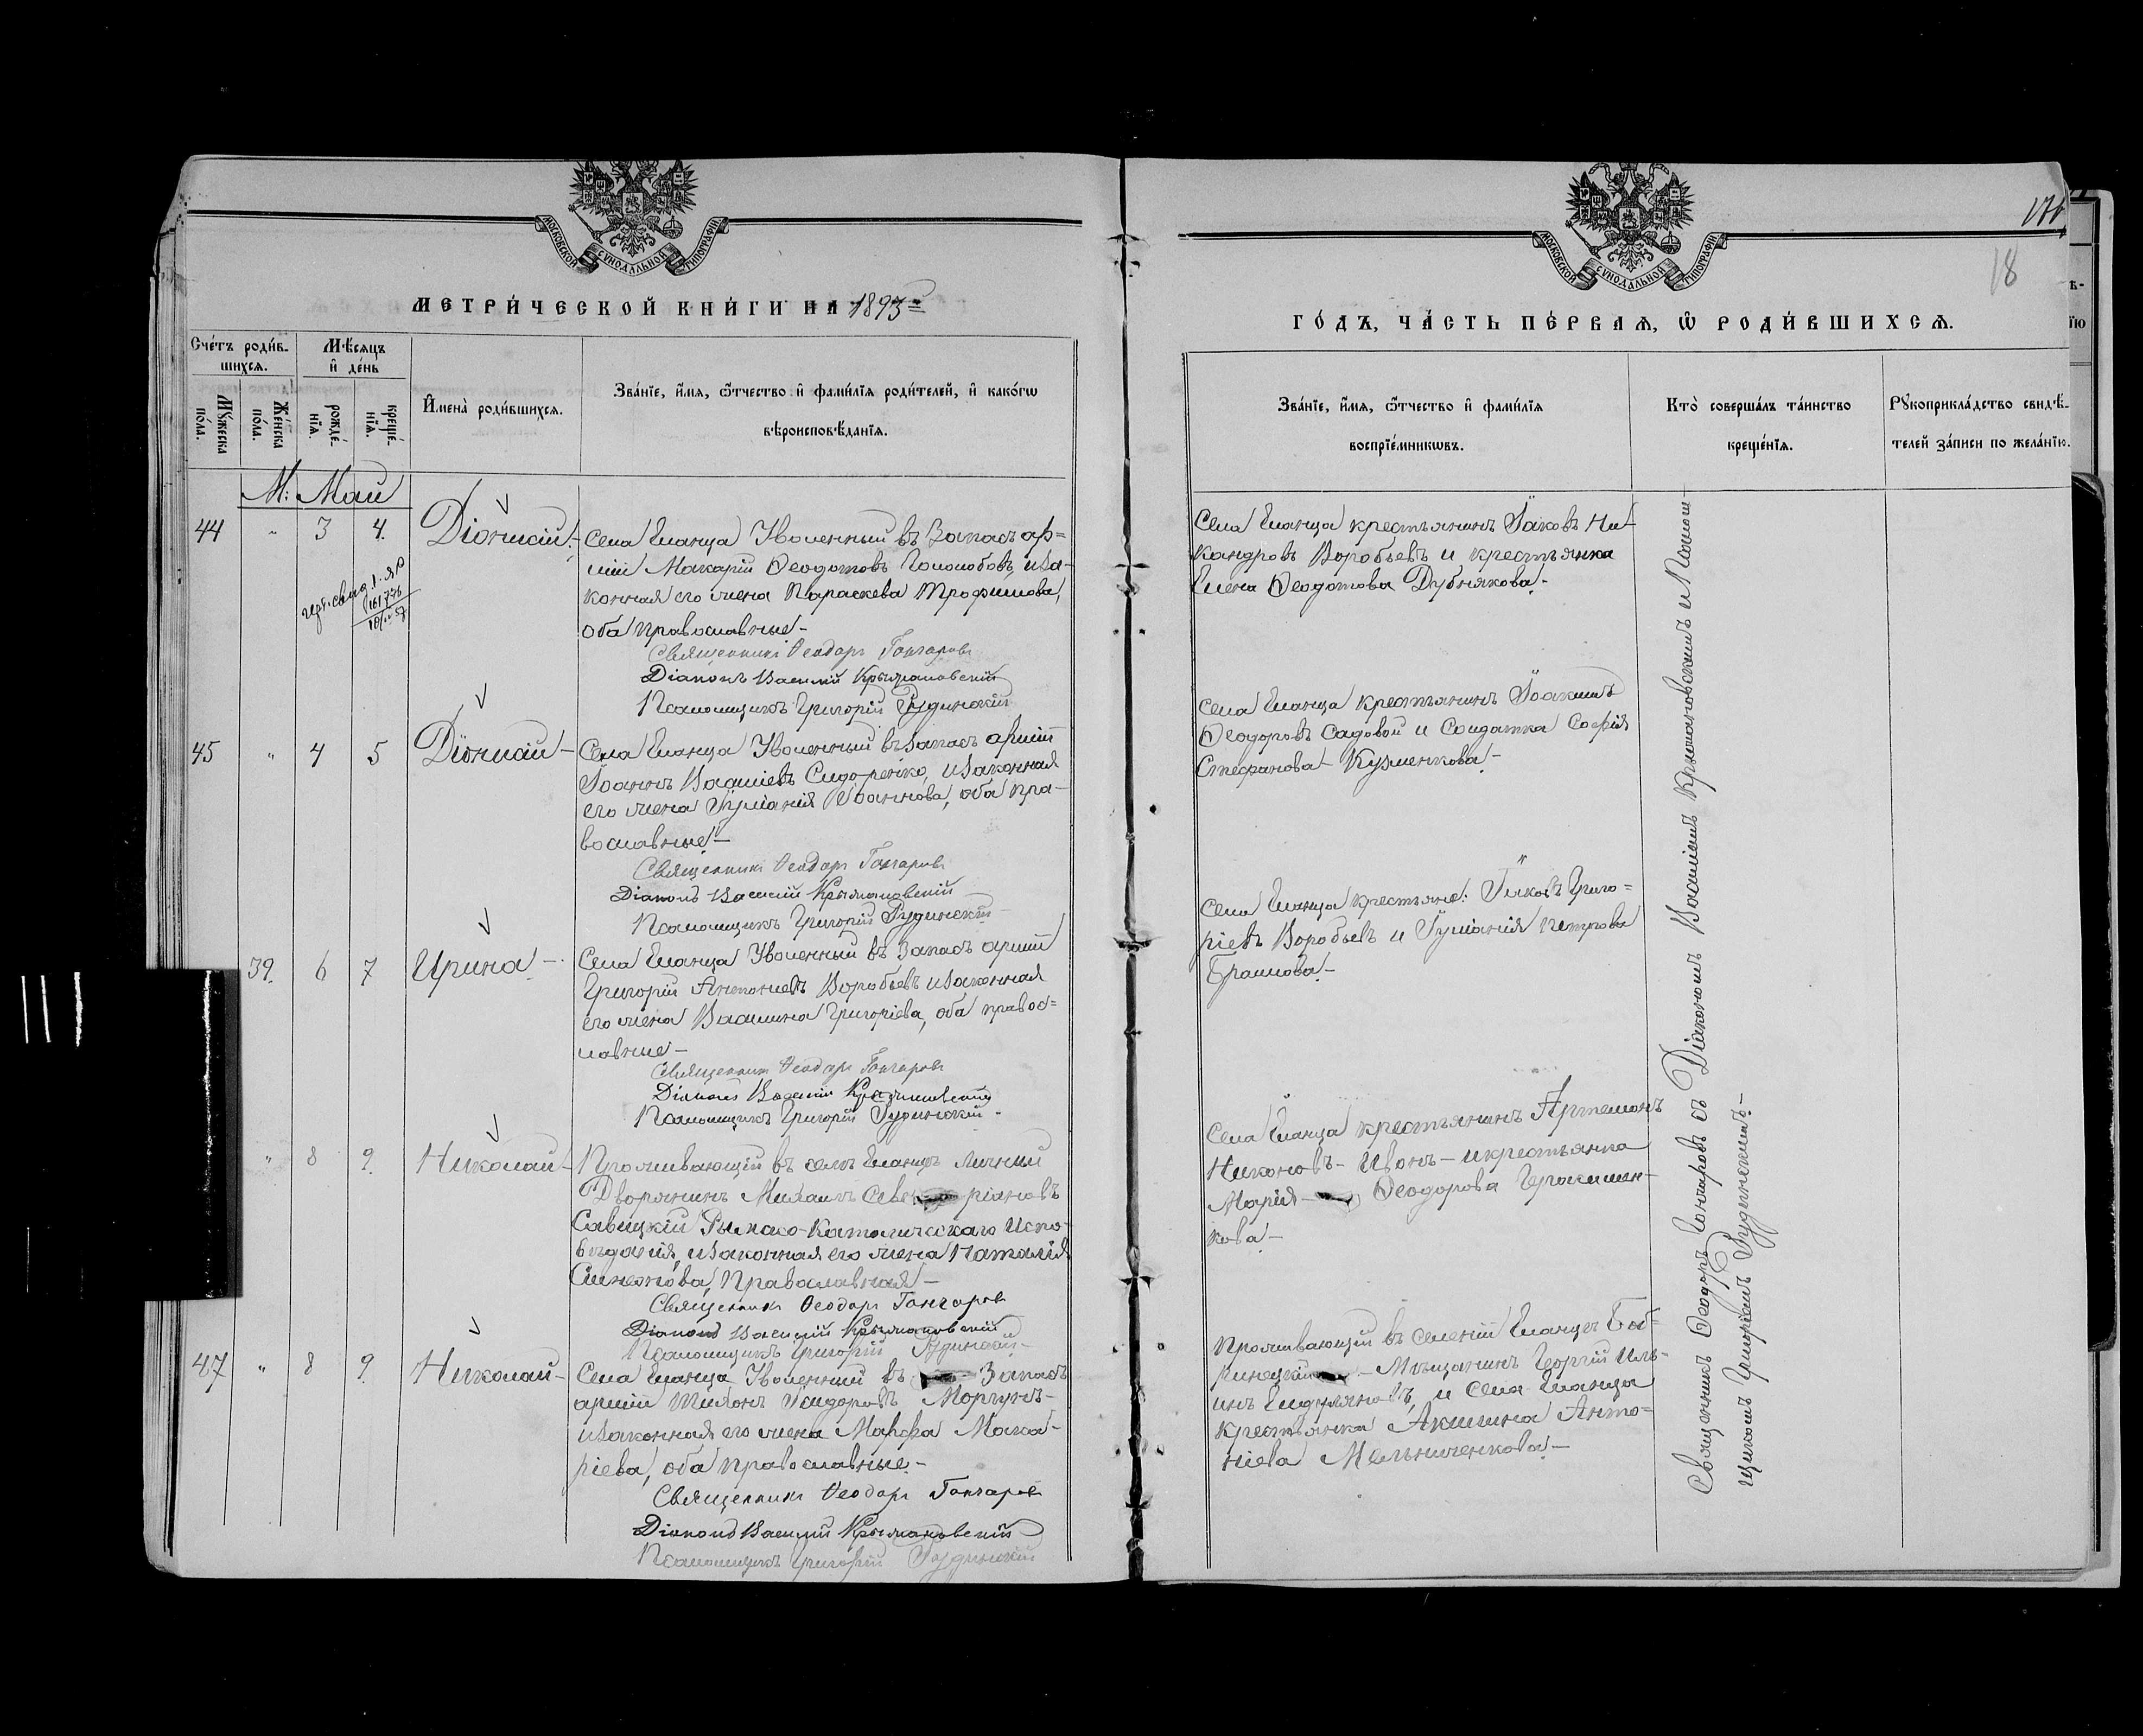 МОСКОВСКОЙ СУНОДАЛЬНОЙ ТИПОГРАФІИ
МЕТРИ́ЧЕСКОЙ КНИ́ГИ НА 1893
Сче́тъ роди́в-
шихсѧ.
Мѣ́сяцъ
и҆ де́нь
Мꙋ́жеска
по́ла.
Же́нска
по́ла.
рожде́-
нїѧ.
креще́-
нїѧ.
И҆мена̀ роди́вшихсѧ.
Зва́нїе, и҆́мѧ, ѻ҆́тчество и҆ фами́лїѧ роди́телей, и҆ како́гѡ
вѣроисповѣ́данїѧ.
М: Май
44 " 3 4. Діонисій.- Села Еланца Уволенный въ Запасъ ар=
міи Макарій Ѳеодотовъ Гололобовъ, и за-
конная его жена Параскева Трофимова,
оба православные.-
161776
Священникъ Ѳеодоръ Гончаровъ
Діаконъ Василій Крыжановскій
Псаломщикъ Григорій Рудинскій
45 " 4 5 Діонисій - Села Еланца Уволенный въ запасъ арміи
Іоаннъ Василіевъ Сидоренко, и законная
его жена Іуліанія Іоаннова, оба пра-
вославные.-
Священникъ Ѳеодоръ Гончаровъ
Діаконъ Василій Крыжановскій
Псаломщикъ Григорій Рудинскій
39. 6 7 Ирина -. Села Еланца Уволенный въ Запасъ арміи
Григорій Антоніевъ Воробьевъ и законная
его жена Василина Григоріева, оба правос=
лавные -
Священникъ Ѳеодоръ Гончаровъ
Діаконъ Василій Крыжановскій
Псаломщикъ Григорій Рудинскій -
" 8 9. Николай - Проживающій въ селѣ Еланцѣ Личный
Дворянинъ Михаилъ Севе ріановъ
Савицкій Римско-Католическаго Испо-
вѣданія, и законная его жена Наталія
Симеонова, Православная -
Священникъ Ѳеодоръ Гончаровъ
Діаконъ Василій Крыжановскій
Псаломщикъ Григорій Рудинскій -
47 " 8 9. Николай - Села Еланца Уволенный въ Запасъ
арміи Исидоровъ Моргунъ -
и законная его жена Марфа Мака-
ріева, оба православные.-
Священникъ Ѳеодоръ Гончаровъ
Діаконъ Василій Крыжановскій
Псаломщикъ Григорій Рудинскій
МОСКОВСКОЙ СУНОДАЛЬНОЙ ТИПОГРАФІИ
18
ГО́ДЪ, ЧА́СТЬ ПЕ́РВАѦ, Ѡ҆ РОДИ́ВШИХСѦ.
Зва́нїе, и҆́мѧ, ѻ҆́тчество и҆ фами́лїѧ
воспрїе́мникѡвъ.
Кто̀ соверша́лъ та́инство
креще́нїѧ.
Рꙋкоприкла́дство свидѣ́-
телей за́писи по жела́нїю.
Села Еланца крестьянинъ Іаковъ Ни-
кандровъ Воробьевъ и крестьянка
Елена Ѳеодотова Дубнякова.-
Села Еланца крестьянинъ Іоакимъ
Ѳеодоровъ Садовой и Солдатка Софія
Стефанова Кузменкова.-
Села Еланца крестьяне: Іаковъ Григо=
ріевъ Воробьевъ и Іуліанія Петрова
Браилова.-
Села Еланца крестьянинъ Артемонъ
Никоновъ - Ивонъ - и крестьянка
Марія - Ѳеодорова Герасимен-
кова -
Проживающій въ селеніи Еланцѣ Боб-
ринецкій - Мѣщанинъ Георгій Иль-
инъ и села Еланца
крестьянка Акилина Анто-
ніева Мельниченкова -
Священникъ Ѳеодоръ Гончаровъ съ Діакономъ Василіемъ Крыжановскимъ и Псалом-
щикомъ Григоріемъ Рудинскимъ.-